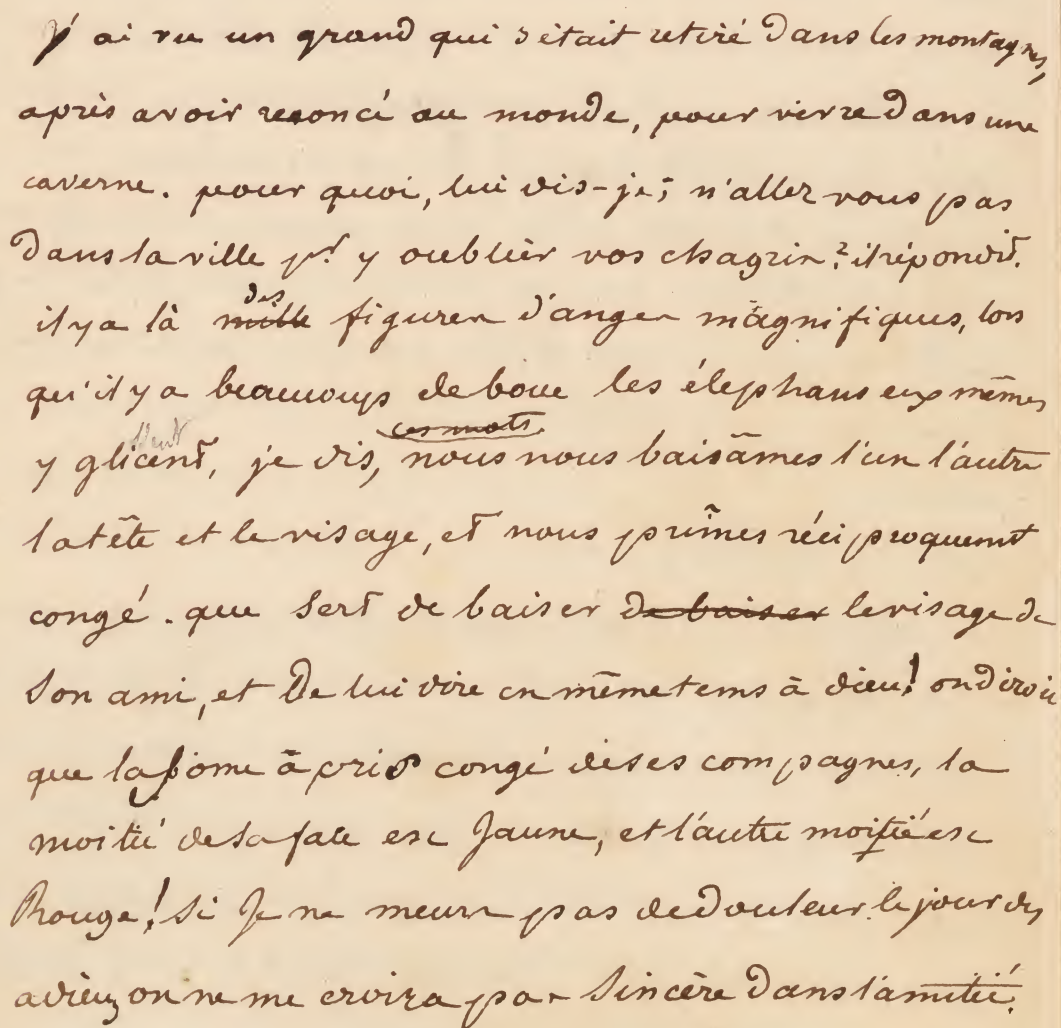 J'ai vu un grand qui s'était retiré dans les montagnes,
après avoir renoncé au monde, pour vivre dans une
caverne. pour quoi, lui dis-je; n'allez vous pas
dans la ville pr. y oublier vos chagrin? il répondit.
il y a là mille des figures d'anges magnifiques, lors
qu'il y a beaucoup de boue les élephans eux mêmes
y glicent, ssent je dis, ces mots nous nous baisâmes l'un l'autre
la tête et le visage, et nous prîmes réciproquemt
congé. que sert de baiser de baiser le visage de
son ami, et de lui dire en même tems à dieu! on diroit
que la pome à pris congé de ses compagnes, la
moitié de sa face est Jaune, et l'autre moitié est
Rouge! Si Je ne meurs pas de douleur le jour des
adieux on ne me croira pas Sincère dans l'amitié.